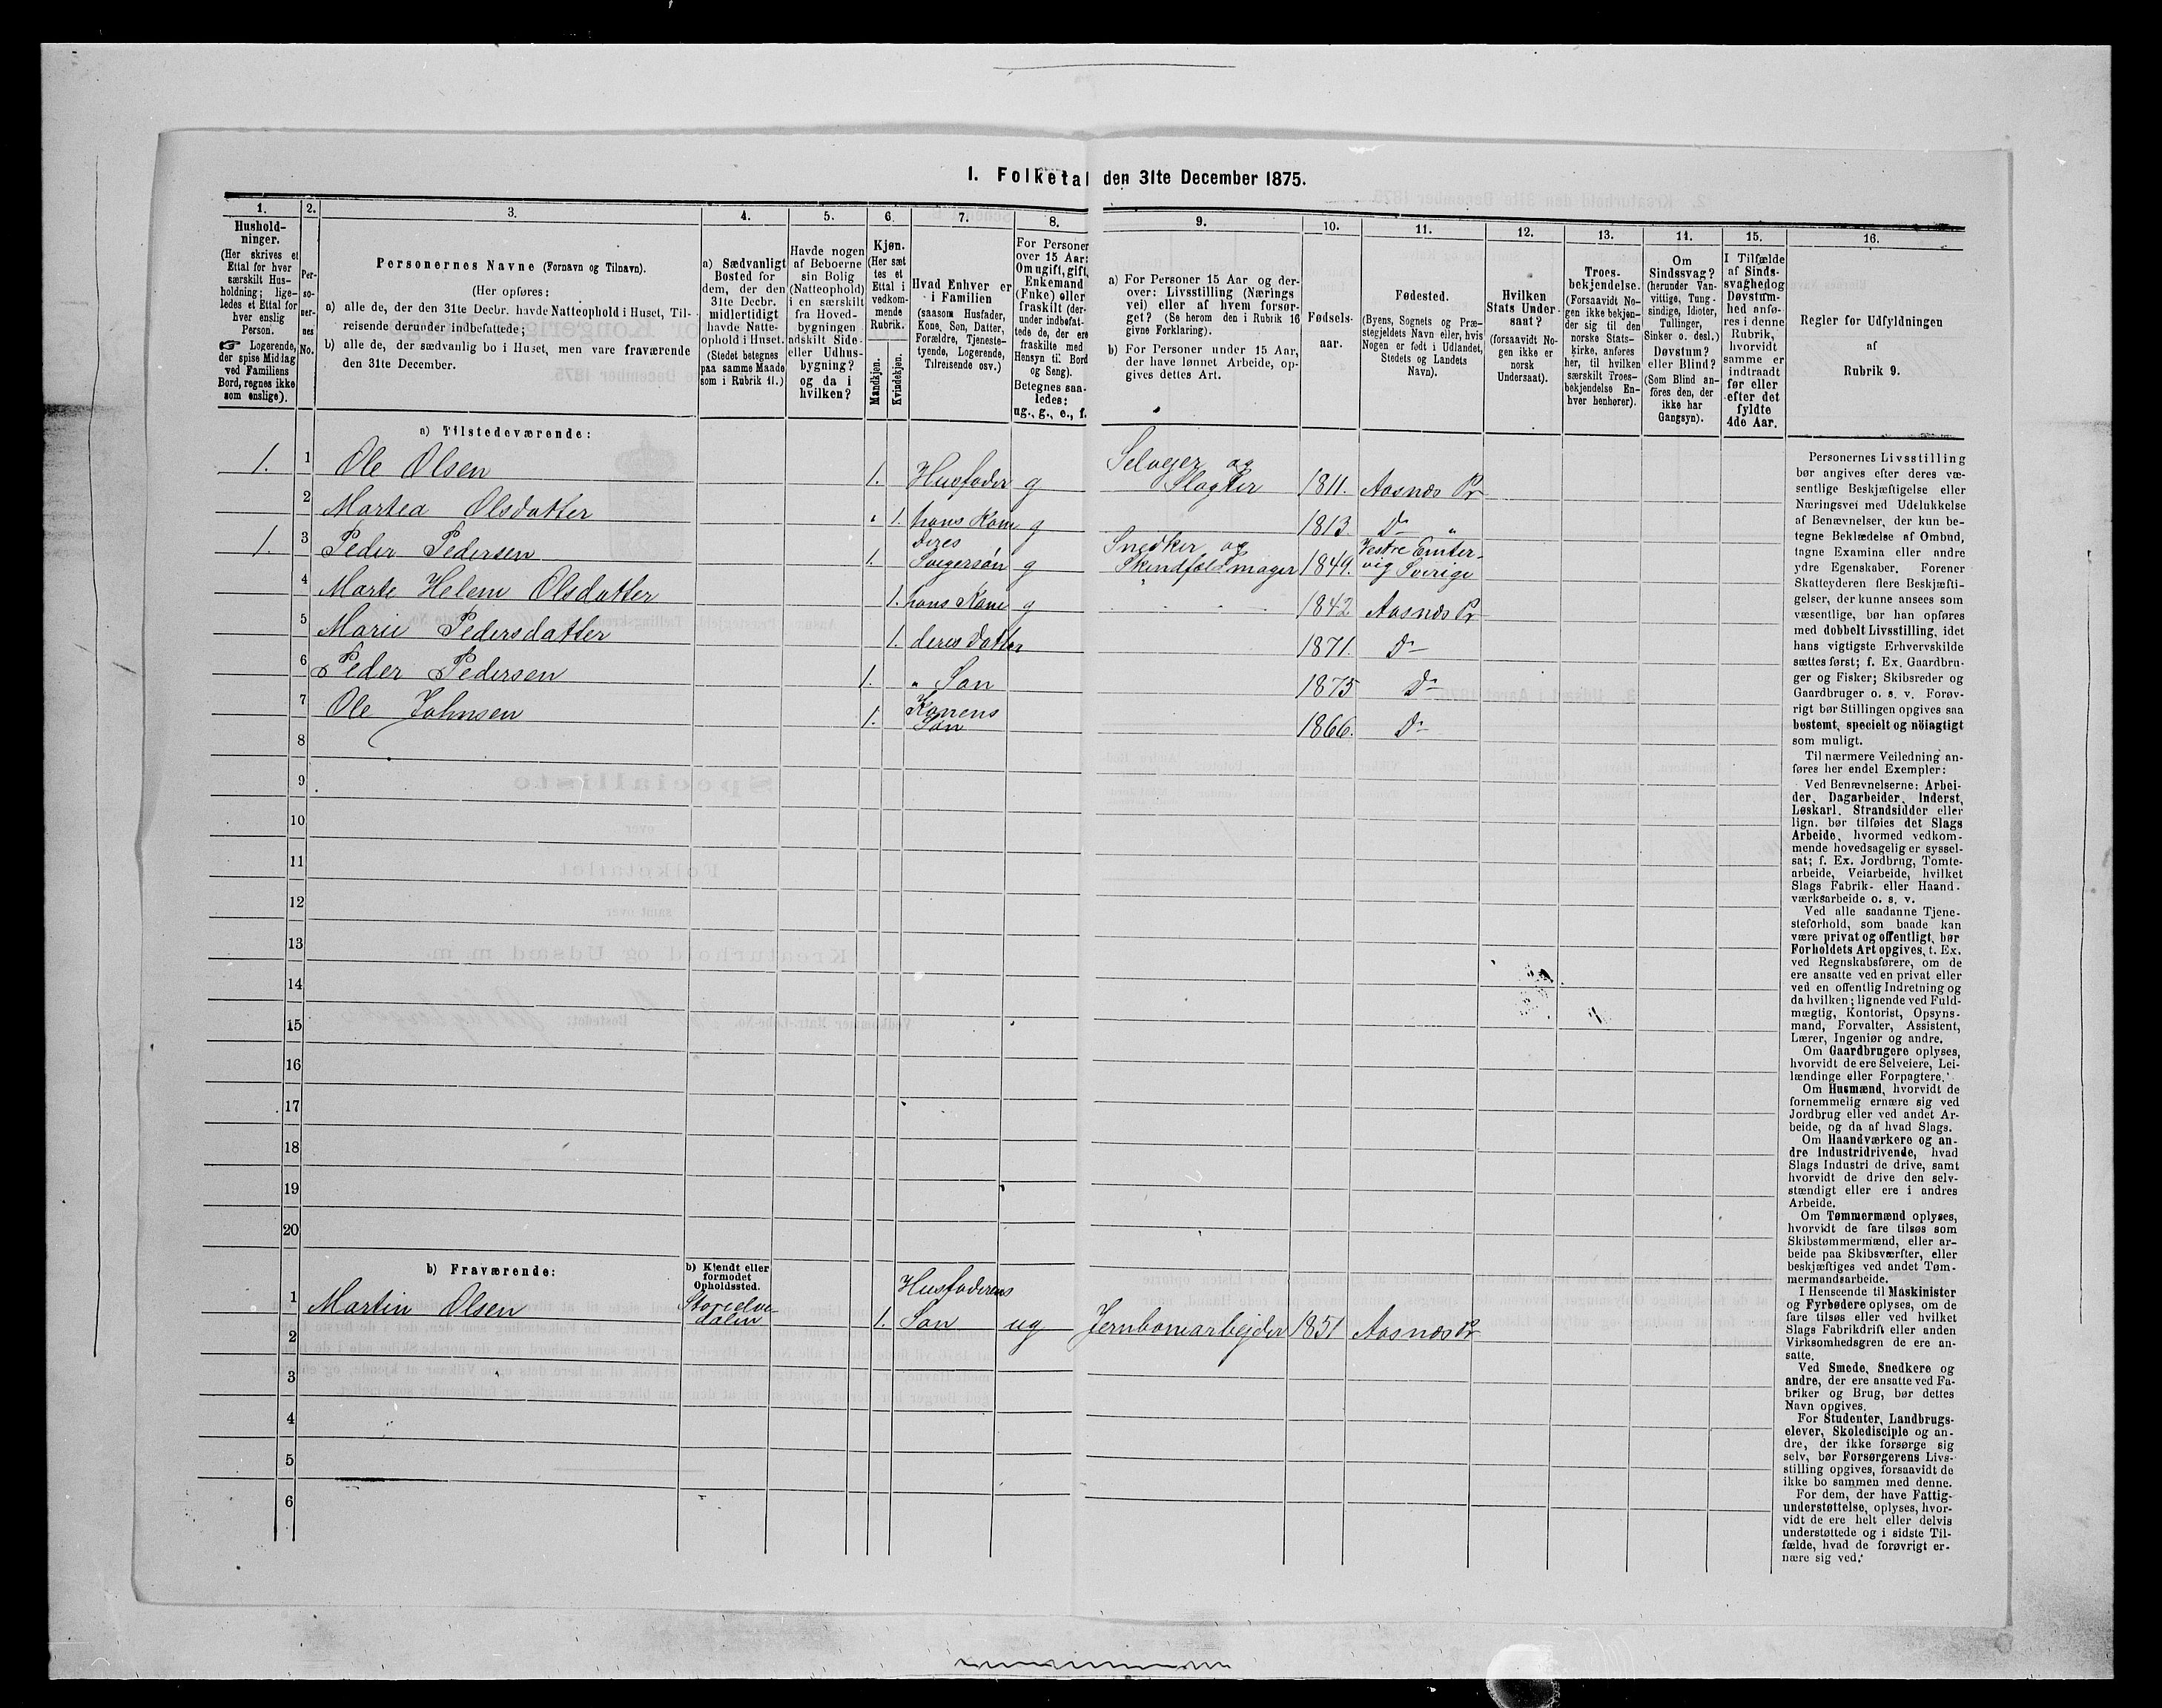 1. Folketal den 31te December 1875.
1.
2.
3.
4.
5.
6.
7.
8.
9.
10.
11.
12.
13.
14.
15.
16.
Hushold-
ninger.
(Her skrives et
Ettal for hver
særskilt Hus-
holdning; lige-
ledes et Ettal for
hver enslig
Person.
☞ Logerende,
der spise Middag
ved Familiens
Bord, regnes ikke
som enslige).
Per-
so-
ner-
nes
No.
Personernes Navne (Fornavn og Tilnavn).
(Her opføres:
a) alle de, der den 31te Decbr. havde Natteophold i Huset, Til-
reisende derunder indbefattede;
b) alle de, der sædvanlig bo i Huset, men vare fraværende
den 31te December.
a) Sædvanligt
Bosted for
dem, der den
31te Decbr.
midlertidigt
havde Natte-
ophold i Huset.
(Stedet betegnes
paa samme Maade
som i Rubrik 11.)
Havde nogen
af Beboerne
sin Bolig
(Natteophold)
i en særskilt
fra Hoved-
bygningen
adskilt Side-
eller Udhus-
bygning?
og da i
hvilken?
Kjøn.
(Her sæt
tes et
Ettal i
vedkom-
mende
Rubrik.
Mandkjøn.
Kvindekjøn.
Hvad Enhver er
i Familien
(saasom Husfader,
Kone, Søn, Datter,
Forældre, Tjeneste-
tyende, Logerende,
Tilreisende osv.)
For Personer
over 15 Aar:
Om ugift, gift,
Enkemand
(Enke) eller
fraskilt (der-
under indbefat-
tede de, der ere
fraskilte med
Hensyn til Bord
og Seng).
Betegnes saa-
ledes:
ug., g., e., f.
a) For Personer 15 Aar og der-
over: Livsstilling (Nærings
vei) eller af hvem forsør-
get? (Se herom den i Rubrik 16
givne Forklaring).
b) For Personer under 15 Aar,
der have lønnet Arbeide, op-
gives dettes Art.
Fødsels-
aar.
Fødested.
(Byens, Sognets og Præ-
stegjeldets Navn eller, hvis
Nogen er født i Udlandet,
Stedets og Landets
Navn).
Hvilken
Stats Under-
saat?
(forsaavidt No-
gen ikke er
norsk
Undersaat).
Troes-
bekjendelse.
(Forsaavidt No-
gen ikke bekjen-
der sig til den
norske Stats-
kirke, anføres
her, til hvilken
særskilt Troes-
bekjendelse En-
hver henhører).
Om
Sindssvag?
(herunder Van-
vittige, Tung-
sindige, Idioter,
Tullinger,
Sinker o. desl.)
Døvstum?
eller Blind?
(Som Blind an-
föres den, der
ikke har
Gangsyn).
I Tilfælde
af Sinds-
svaghed og
Døvstum-
hed anfø-
res i denne
Rubrik,
hvorvidt
samme er
indtraadt
før eller
efter det
fyldte
4de Aar.
Regler for Udfyldningen
af
Rubrik 9.
a) Tilstedeværende:
1. 1 Ole Olsen 1. Husfader g Selvejer og Slagter 1811. Aasnæs Pr
2 Martea Olsdatter 1. hans Kone g 1813. Do "
1. 3 Peder Pedersen 1. deres Svigersøn g Snedker og Skindfeldmager 1849. Vestre Emtervig Sverige
4 Marte Helene Olsdatter 1. hans Kone g 1842 Aasnæs Pr
5 Marie Pedersdatter 1. deres Datter 1871. Do
6 Peder Pedersen 1. " Søn 1875 Do
7 Ole Johnsen 1. Konens Søn 1866. Do
8
9
10
11
12
13
14
15
16
17
18
19
20
b) Fraværende:
b) Kjendt eller
formodet
Opholdssted.
1 Martin Olsen Storelvedalen 1. Husfaderens Søn ug Jernbanearbejder 1851 Aasnæs Pr
2
3
4
5
6
Personernes Livsstilling
bør angives efter deres væ-
sentlige Beskjæftigelse eller
Næringsvei med Udelukkelse
af Benævnelser, der kun be-
tegne Beklædelse af Ombud,
tagne Examina eller andre
ydre Egenskaber. Forener
Skatteyderen flere Beskjæfti-
gelser, der kunne ansees som
væsentlige, bør han opføres
med dobbelt Livsstilling, idet
hans vigtigste Erhvervskilde
sættes først; f. Ex. Gaardbru-
ger og Fisker; Skibsreder og
Gaardbruger o. s. v. Forøv-
rigt bør Stillingen opgives saa
bestemt, specielt og nöiagtigt
som muligt.
Til nærmere Veiledning an-
føres her endel Exempler:
Ved Benævnelserne: Arbei-
der, Dagarbeider, Inderst,
Løskarl, Strandsidder eller
lign. bør tilføies det Slags
Arbeide, hvormed vedkom-
mende hovedsagelig er syssel-
sat; f. Ex. Jordbrug, Tomte-
arbeide, Veiarbeide, hvilket
Slags Fabrik- eller Haand-
værksarbeide o. s. v.
Ved alle saadanne Tjene-
steforhold, som baade kan
være privat og offentligt, bør
Forholdets Art opgives, t. Ex.
ved Regnskabsførere, om de
ere ansatte ved en privat eller
ved en offentlig Indretning og
da hvilken; lignende ved Fuld-
mægtig, Kontorist, Opsyns-
mand, Forvalter, Assistent,
Lærer, Ingeniør og andre.
Om Gaardbrugere oplyses,
hvorvidt de ere Selveiere, Lei-
lændinge eller Forpagtere.
Om Husmænd, hvorvidt de
fornemmelig ernære sig ved
Jordbrug eller ved andet Ar-
beide, og da af hvad Slags.
Om Haandværkere og an-
dre Industridrivende, hvad
Slags Industri de drive, samt
hvorvidt de drive den selv-
stændigt eller ere i andres
Arbeide.
Om Tømmermænd oplyses,
hvorvidt de fare tilsøs som
Skibstømmermænd, eller ar-
beide paa Skibsværfter, eller
beskjæftiges ved andet Tøm-
mermandsarbeide.
I Henseende til Maskinister
og Fyrbødere oplyses, om de
fare tilsøs eller ved hvilket
Slags Fabrikdrift eller anden
Virksomhedsgren de ere an-
satte.
Ved Smede, Snedkere og
andre, der ere ansatte ved Fa-
briker og Brug, bør dettes
Navn opgives.
For Studenter, Landbrugs-
elever, Skoledisciple og an-
dre, der ikke forsørge sig
selv, bør Forsørgerens Livs-
stilling opgives, forsaavidt de
ikke bo sammen med denne.
For dem, der have Fattig-
understøttelse, oplyses, hvor-
vidt de ere helt eller delvis
understøttede og i sidste Til-
fælde, hvad de forøvrigt er-
nære sig ved.